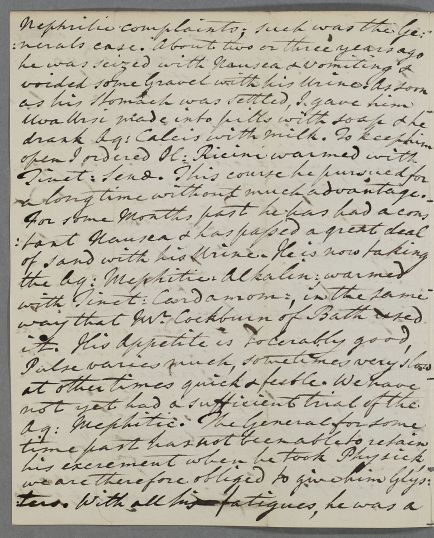 Nephritic complaints; such was the Ge:
:nerals case. About two or three years ago
he was seized with Nausea & vomiting &
voided some Gravel with his Urine. As soon
as his Stomach was settled, I gave him
Uva Ursi made into pills with soap & he
drank Aq: Calcis with milk. To keep him
open I ordered Ol: Ricini warmed with
Tinct: Senae. This course he pursued for
a long time without much advantage.
For some Months past he has had a cons
:tant Nausea & has passed a great deal
of Sand with his Urine. He is now taking
the Aq: Mephitic: Alkalin: warmed
with Tinct: Cardamom:, in the same
way that Mr. Cockburn of Bath used
it. His Appetite is tolerably good,
Pulse varies much, sometimes very slow
at other times quick & feeble. We have
not yet had a sufficient trial of the
Aq: Mephitic: The General for some
time past has not been able to retain
his excrement when he took Physick
we are therefore obliged to give him Glys:
ters. With all his fatigues, he was a